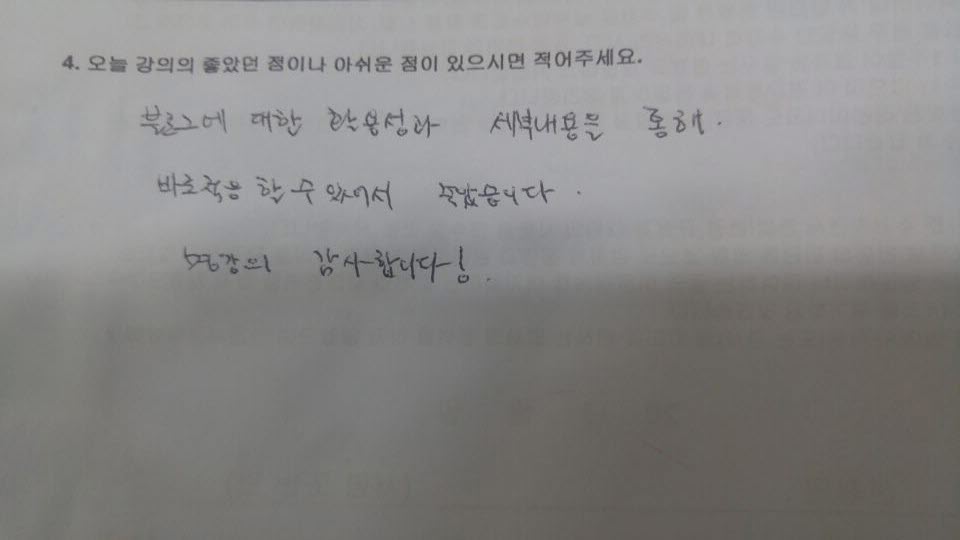 4. 오늘 강의의 좋았던 점이나 아쉬운 점이 있으시면 적어주세요.
블로그에 대한 활용성과 세부내용을 통해.
바로적용 할 수 있어서 좋았습니다.
명강의 감사합니다!